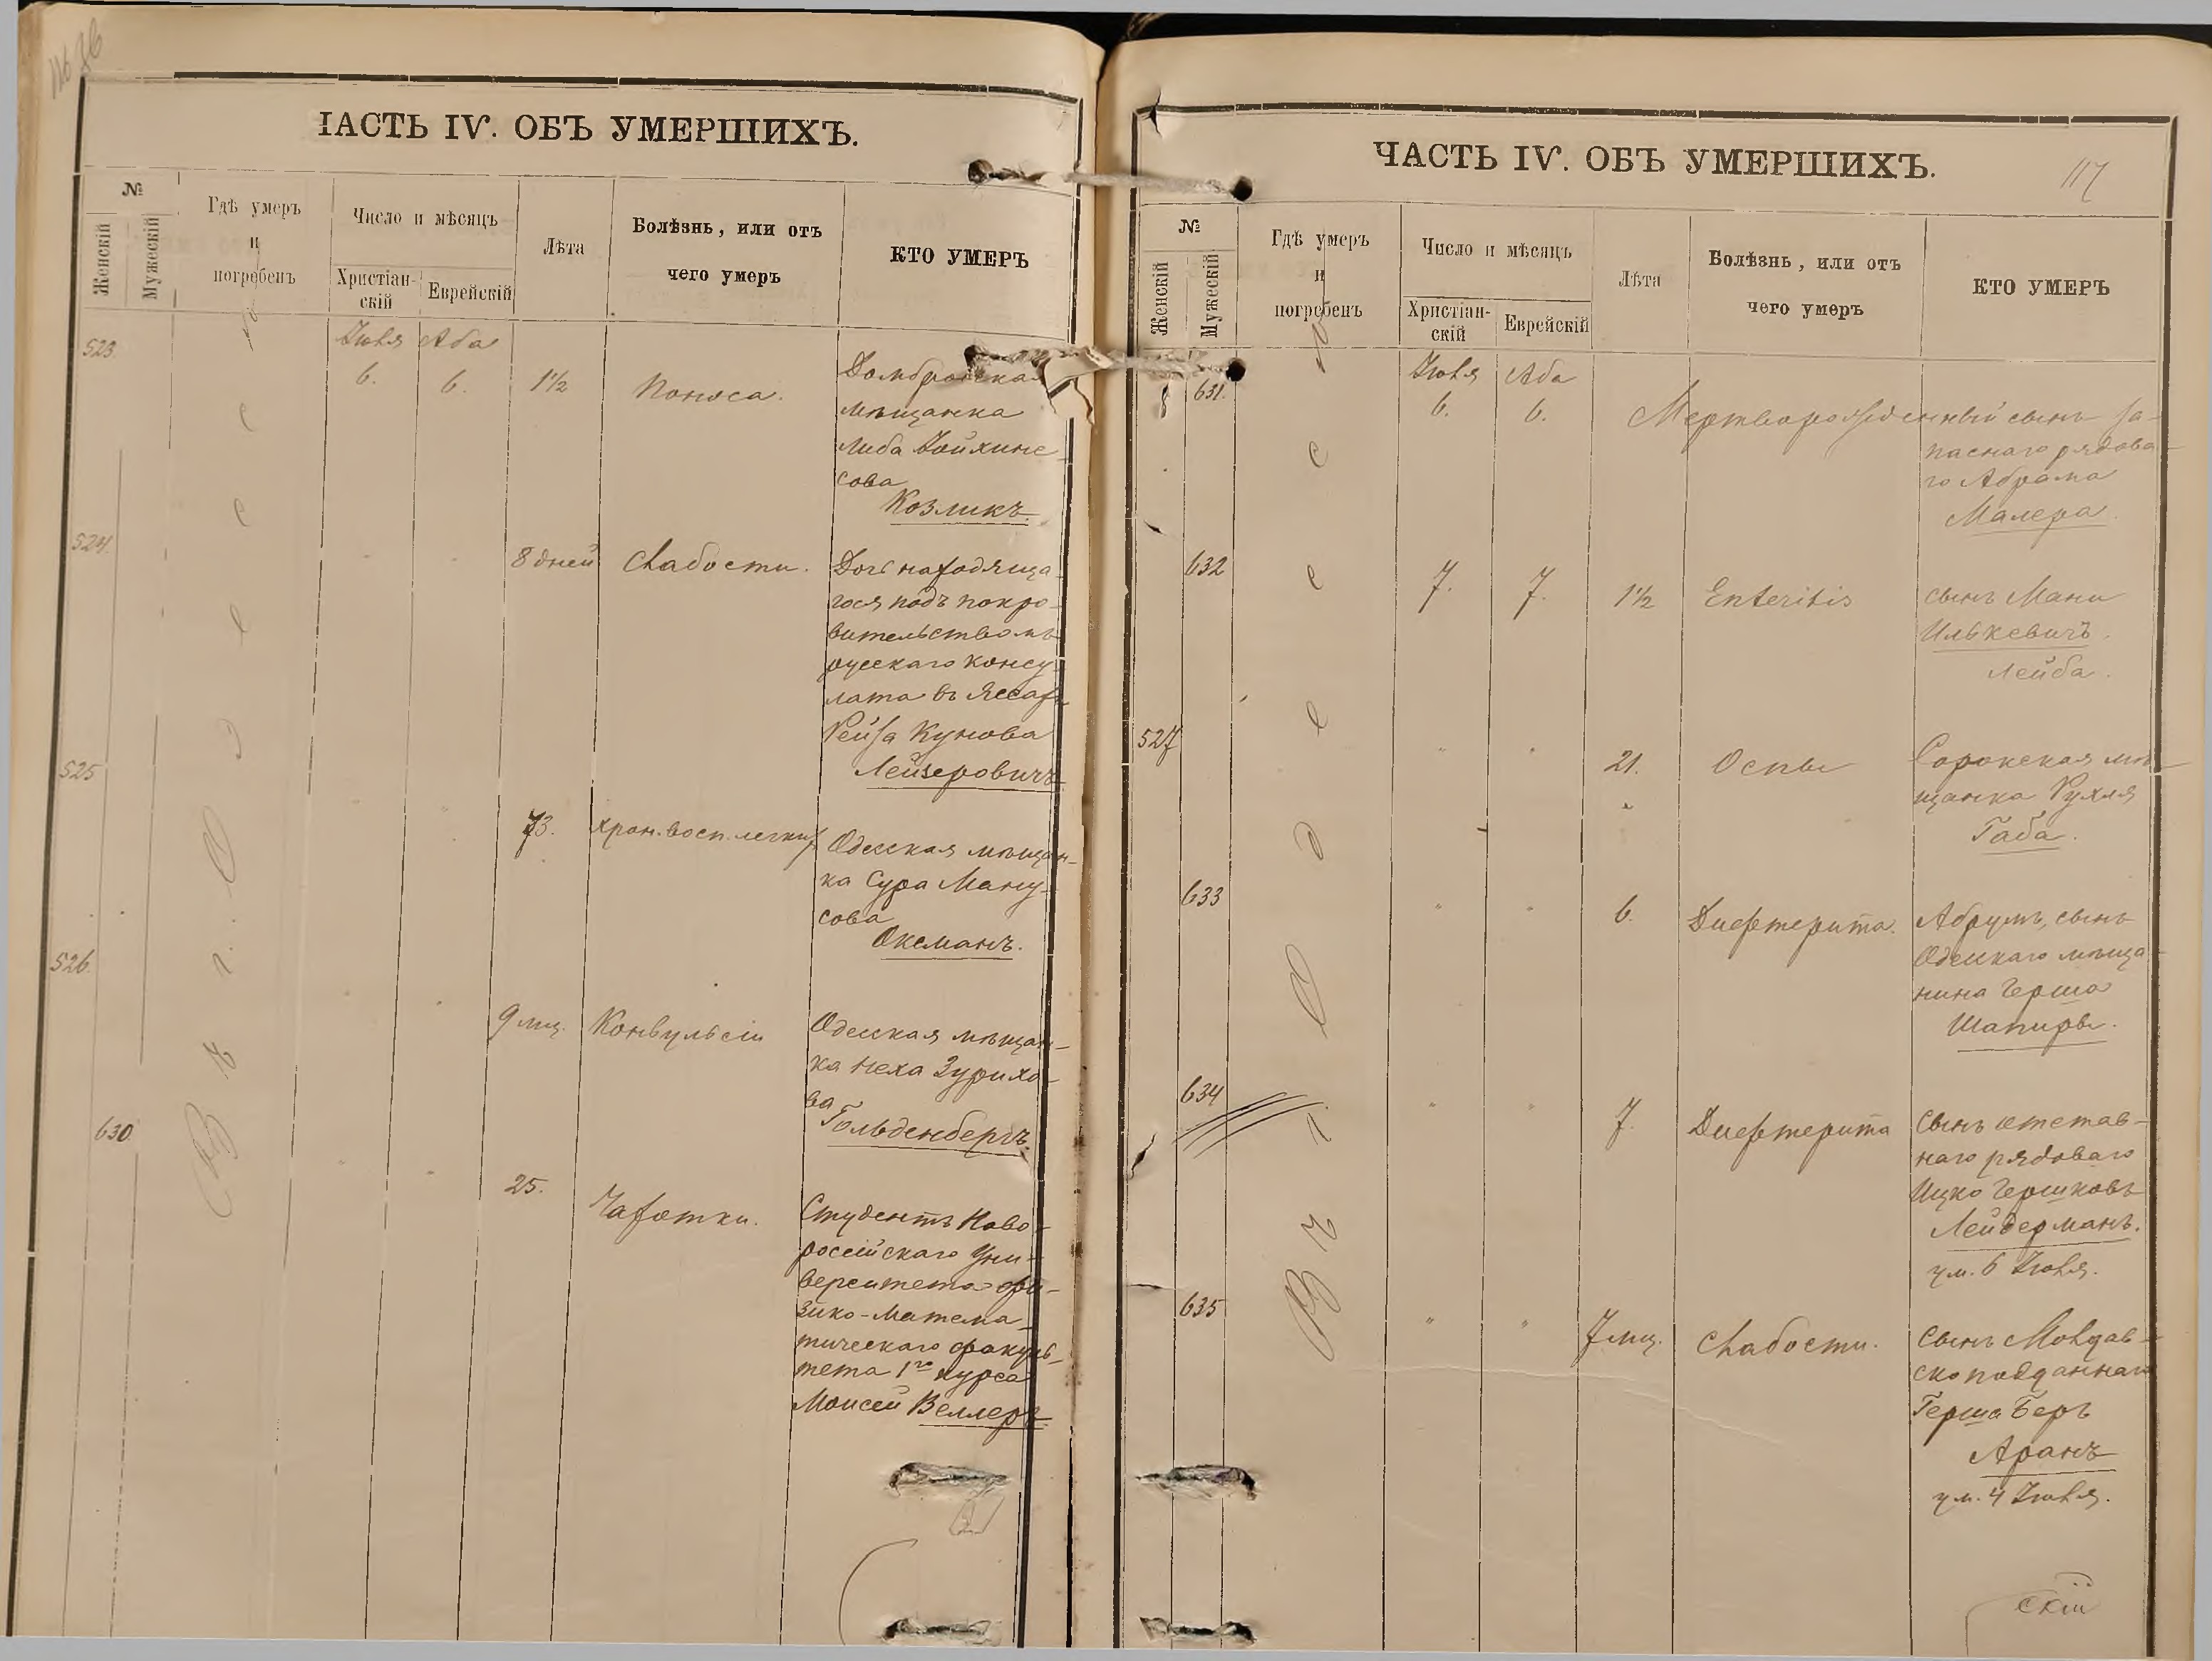 ЧАСТЬ IV. ОБЪ УМЕРШИХЪ.
№
Женскій
Мужескій
Гдѣ умеръ
и
погребенъ
Число и мѣсяцъ
Христіан-
скій
Еврейскій
Лѣта
Болѣзнь, или отъ
чего умеръ
КТО УМЕРЪ
Въ г. Одессѣ
523.
Іюля
Аба
6.
6.
1½
Поноса.
Домбровская
мѣщанка
Либа
сова
Козликъ.
524.
8 дней
Слабости.
Дочь находяща-
гося подъ покро-
вительствомъ
русскаго консу-
лата въ Яссахъ
Рейза Кунова
Лейзеровичъ
525
73.
Хрон. восп. легкихъ
Одесская мѣщан-
ка Сура Ману-
сова
Оксманъ.
526.
9 мц.
Конвульсіи
Одесская мѣщан-
ка Неха Зурихо-
ва
Гольденбергъ.
630.
25.
Чахотки.
Студентъ Ново-
россійскаго Уни-
верситета фи-
зико-матема-
тическаго факуль-
тета 1го курса
Моисей Веллеръ.
ЧАСТЬ IV. ОБЪ УМЕРШИХЪ.
117
№
Женскій
Мужескій
Гдѣ умеръ
и
погребенъ
Число и мѣсяцъ
Христіан-
скій
Еврейскій
Лѣта
Болѣзнь, или отъ
чего умеръ
КТО УМЕРЪ
Въ г. Одессѣ
631.
Іюля
Аба
6.
6.
Мертворожденный сынъ за-
паснаго рядова-
го Абрама
Малера.
632
7.
7.
1½
Enteritis
сынъ Мани
Илькевичъ.
Лейба.
527
21.
Оспы
Сорокская мѣ-
щанка Рухля
Габа.
633
6.
Дифтерита.
Абрумъ, сынъ
Одесскаго мѣща-
нина Герша
Шапиры.
634
7.
Дифтерита
Сынъ отстав-
наго рядоваго
Ицко Гершковъ
Лейдерманъ.
ум. 6 Іюля.
635
7 мц.
Слабости.
Сынъ Молдав-
скоподданнаго
Герша Беръ
Аранъ
ум. 4 Іюля.
скій